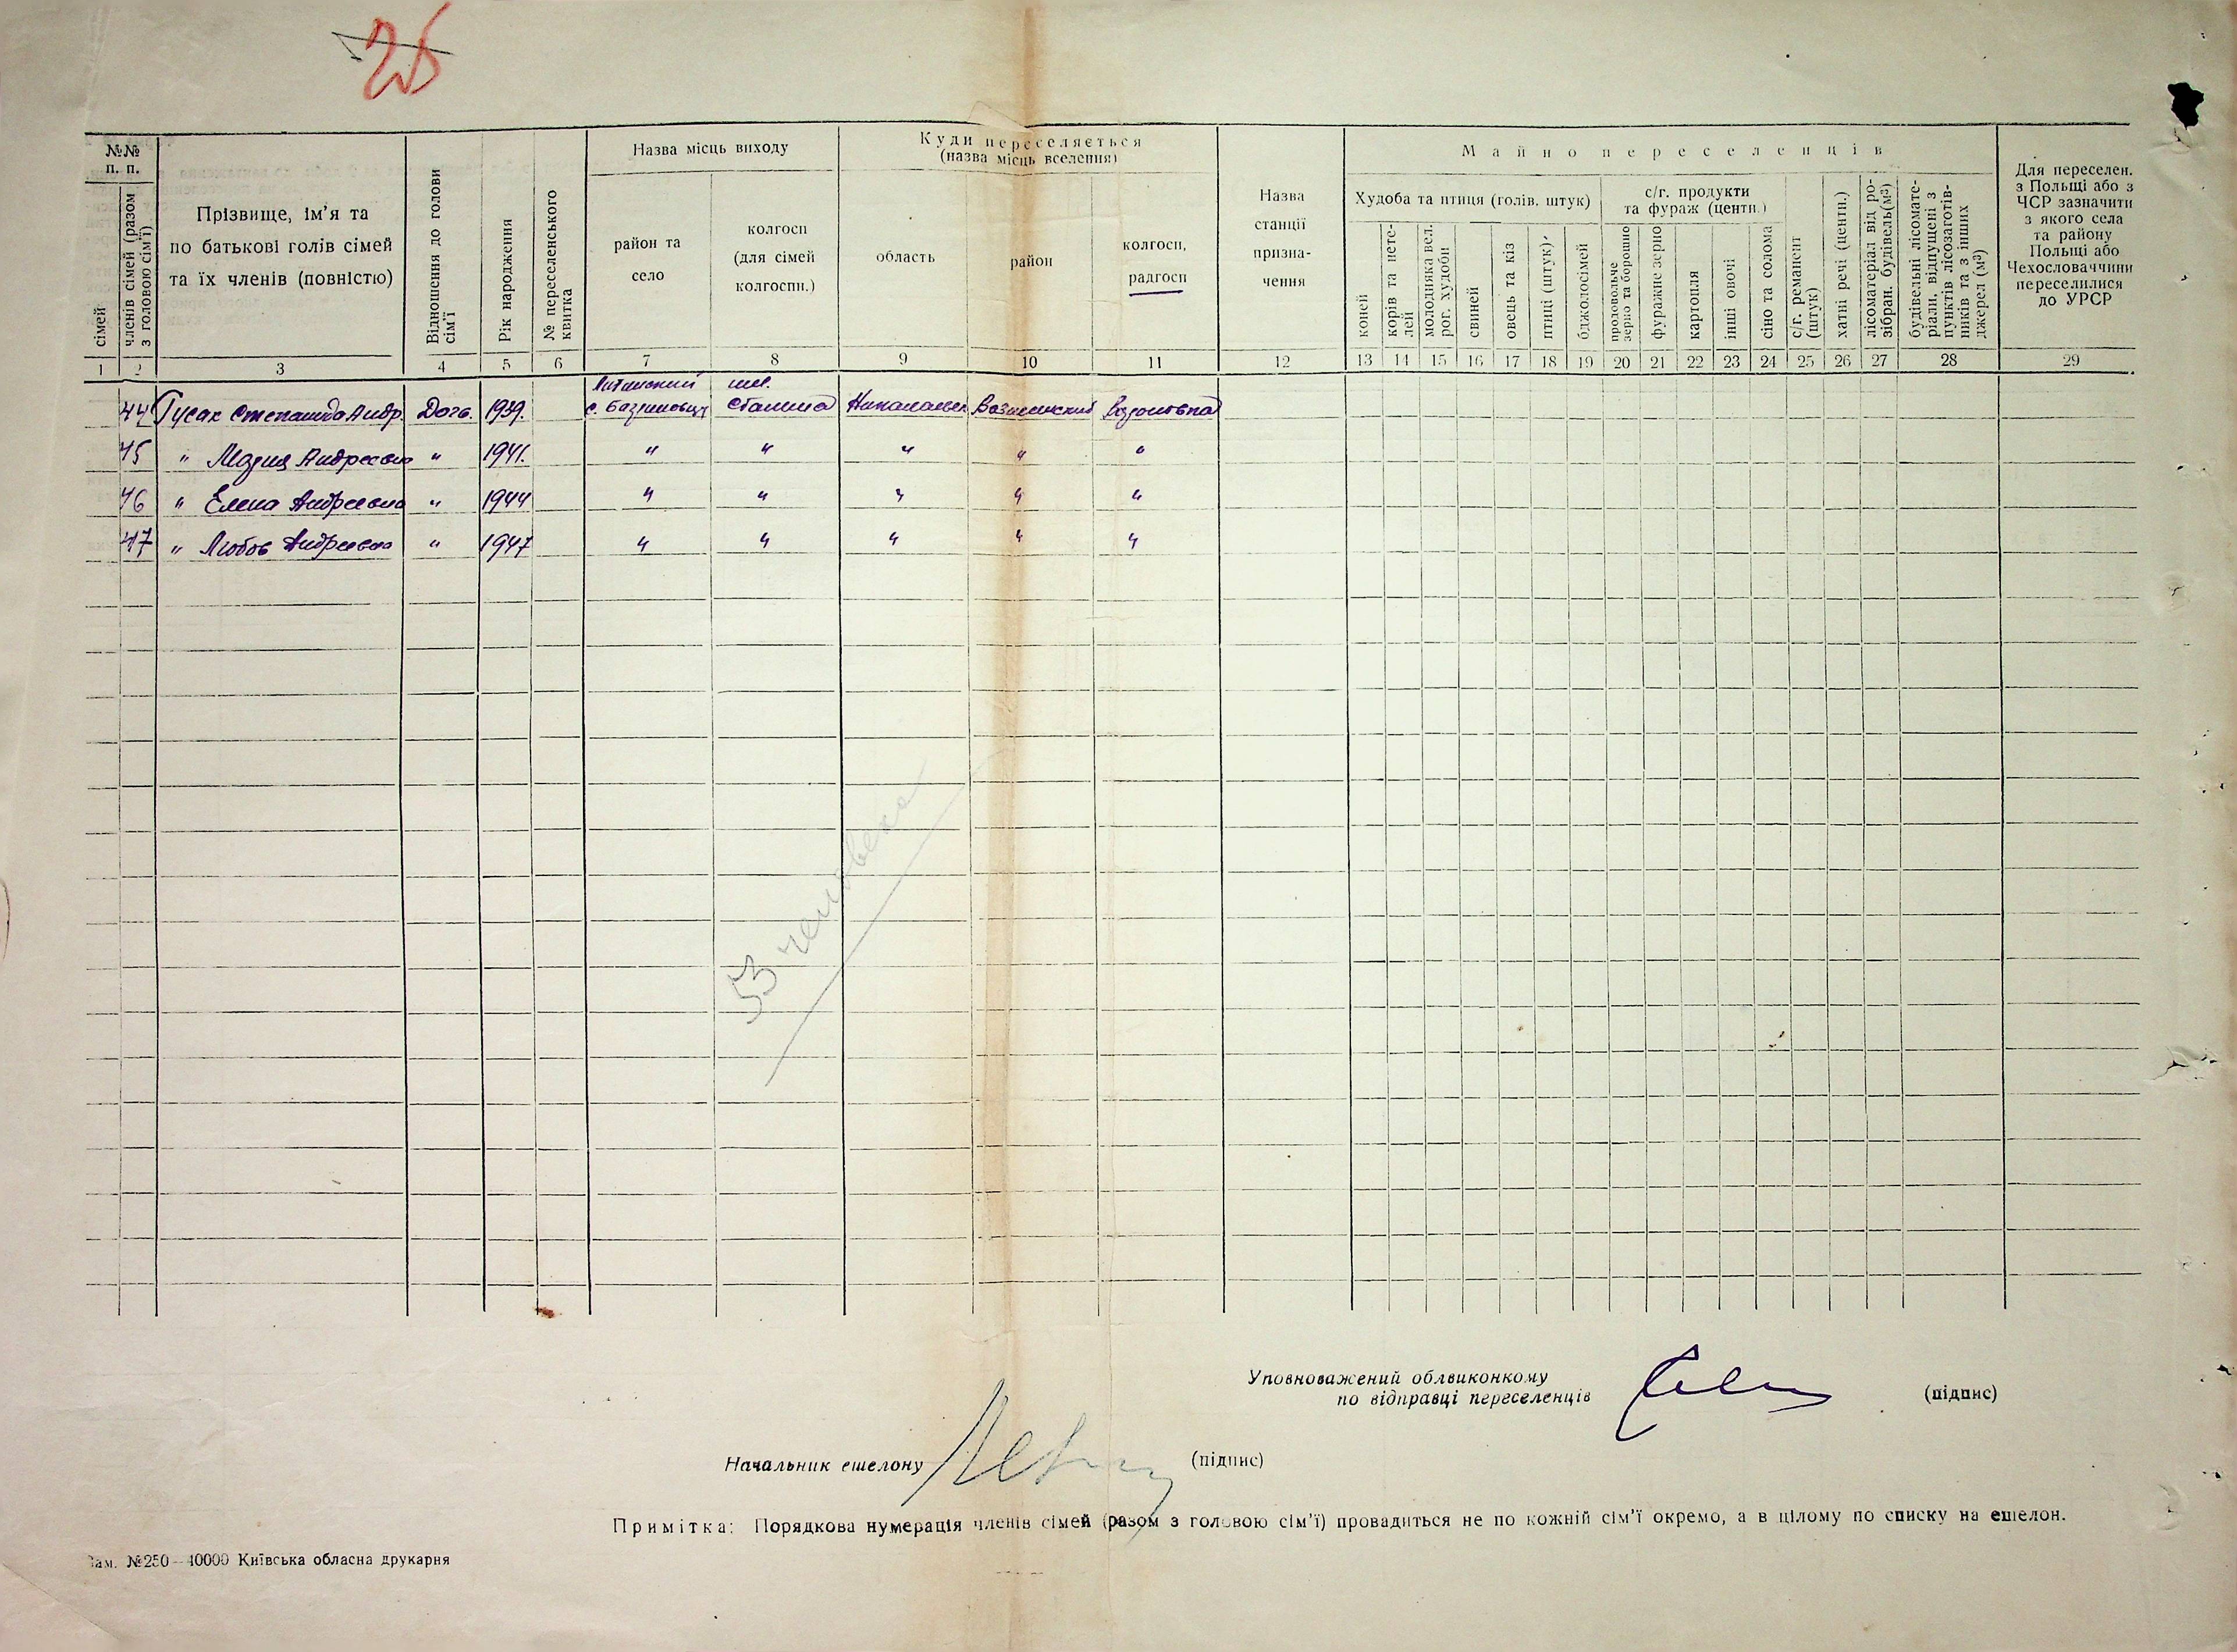 26
№№
п. п.
сімей
членів сімей (разом
з головою сім'ї)
Прізвище, ім'я та
по батькові голів сімей
та їх членів (повністю)
Відношення до голови
сім'ї
Рік народження
№ переселенського
квитка
Назва місць виходу
район та
село
колгосп
(для сімей
колгоспн.)
Куди переселяється
(назва місць вселення)
область
район
колгосп,
радгосп
Назва
станції
призна-
чення
Майно переселенців
Худоба та птиця (голів, штук)
коней
корів та нете-
лей
молодняка вел.
рог. худоби
свиней
овець та кіз
птиці (штук)
бджолосімей
с/г. продукти
та фураж (центн.)
продовольче
зерно та борошно
фуражне зерно
картопля
інші овочі
сіно та солома
с/г. реманент
(штук)
хатні речі (центн.)
лісоматеріал від ро-
зібран. будівель(м³)
будівельні лісомате-
ріали, відпущені з
пунктів лісозаготів-
ників та з інших
джерел (м³)
Для переселен.
з Польщі або з
ЧСР зазначити
з якого села
та району
Польщі або
Чехословаччини
переселилися
до УРСР
1 2 3 4 5 6 7 8 9 10 11 12 13 14 15 16 17 18 19 20 21 22 23 24 25 26 27 28 29
44 Гусак Степанида Андр. Доч. 1939. с. Сталина Николаевск Вознесенский
45 " Мария Андреевна " 1941. " " " " "
46 " Елена Андреевна " 1944 " " " " "
47 " Любов Андреевна " 1947 " " " " "
53 человека
Уповноважений облвиконкому
по відправці переселенців (підпис)
Начальник ешелону (підпис)
Примітка: Порядкова нумерація членів сімей (разом з головою сім'ї) провадиться не по кожній сім'ї окремо, а в цілому по списку на ешелон.
Зам. №250—40000 Київська обласна друкарня